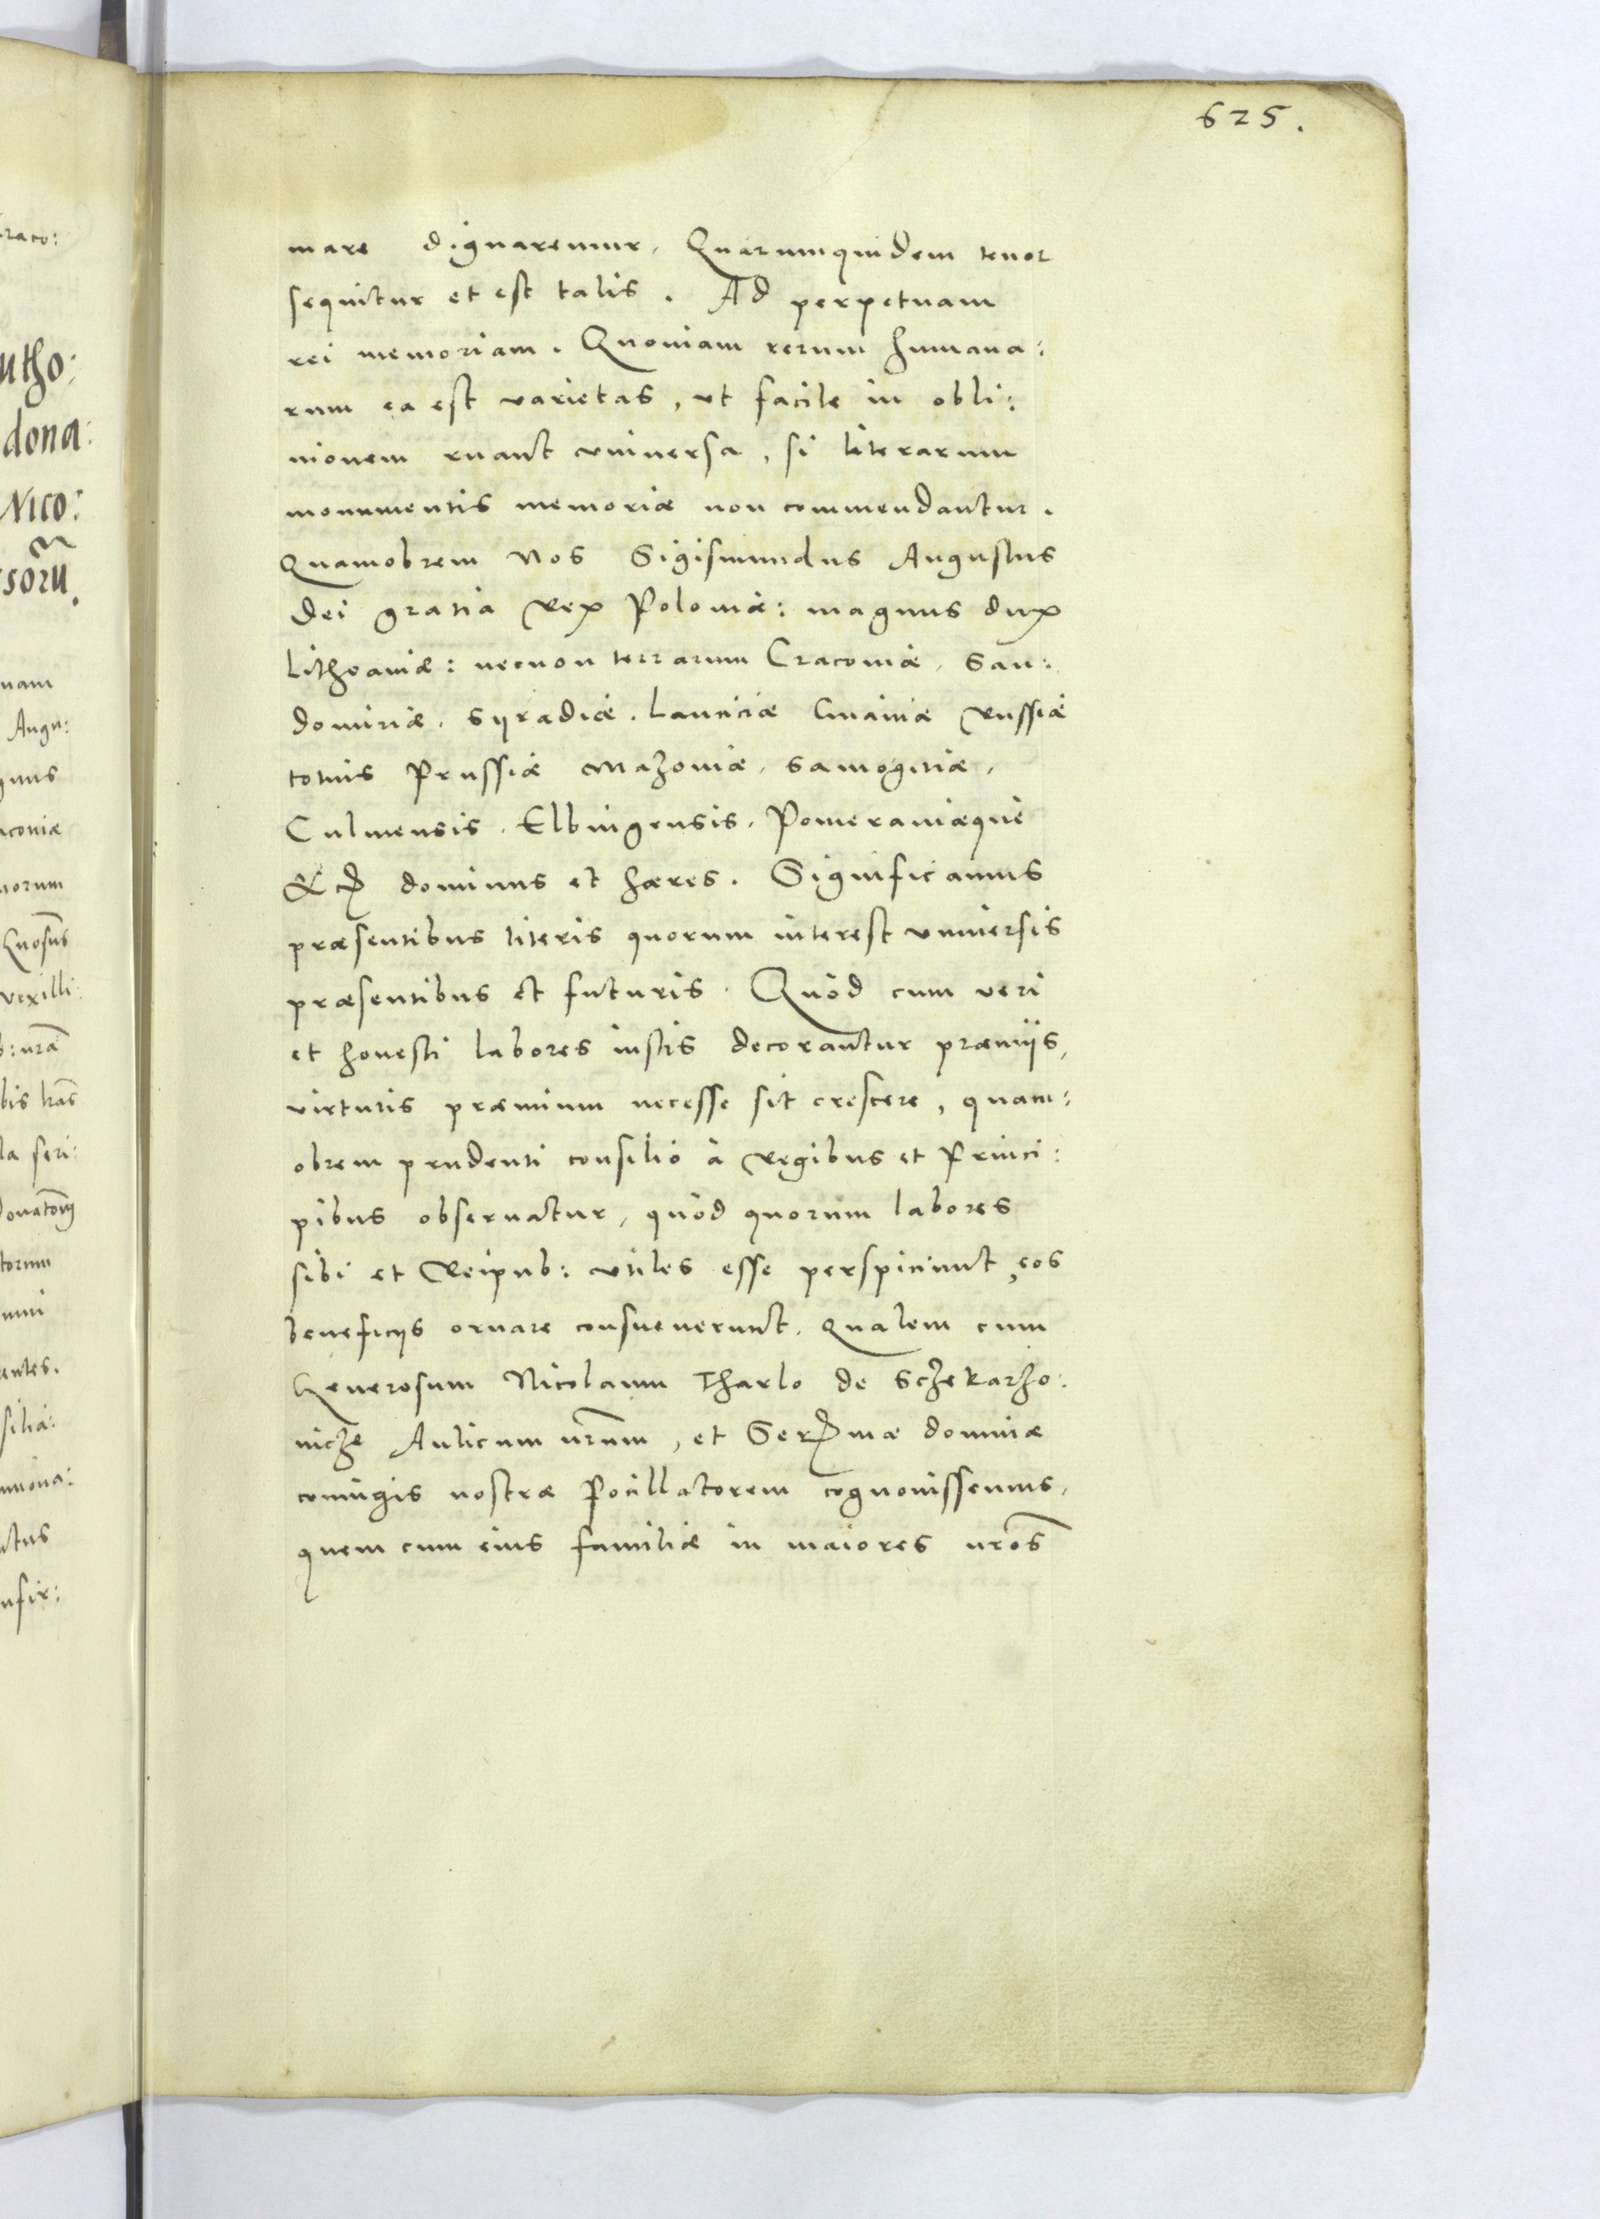 625.
mare dignaremur. Quarumquidem tenor
sequitur et est talis. Ad perpetuam
rei memoriam. Quoniam rerum humana:
rum ea est varietas, vt facile in obli:
uionem ruant vniuersa, si literarum
monumentis memoriæ non commendantur.
Quamobrem Nos Sigismundus Augustus
Dei gratia Rex Poloniæ: magnus dux
Lithvaniæ: necnon terrarum Cracoviæ. San:
domiriæ. Syradiæ. Lanciciæ Cuiaviæ Russiæ
totius Prussiæ Mazoviæ. Samogitiæ.
Culmensis. Elbingensis. Pomeraniæque
&c dominus et hæres. Significamus
præsentibus literis quorum interest vniuersis
præsentibus et futuris. Quòd cum veri
et honesti labores iustis decorantur præmijs,
virtutis præmium necesse sit crescere, quam:
obrem prudenti consilio à Regibus et Princi:
pibus obseruatur, quòd quorum labores
sibi et Reipub: vtiles esse perspiciunt, eos
beneficijs ornare consueuerunt. Qualem cum
Generosum Nicolaum Tharlo de Sczekarzo:
uicze Aulicum nrum, et Sermæ dominæ
coniugis nostræ Pocillatorem cognouissemus,
quem cum eius familiæ in maiores nros
raco:
utho:
dona:
Nico:
soru.
nam
Augu:
gnus
aconiæ
norum
vexilli:
torum
entes.
nfir: